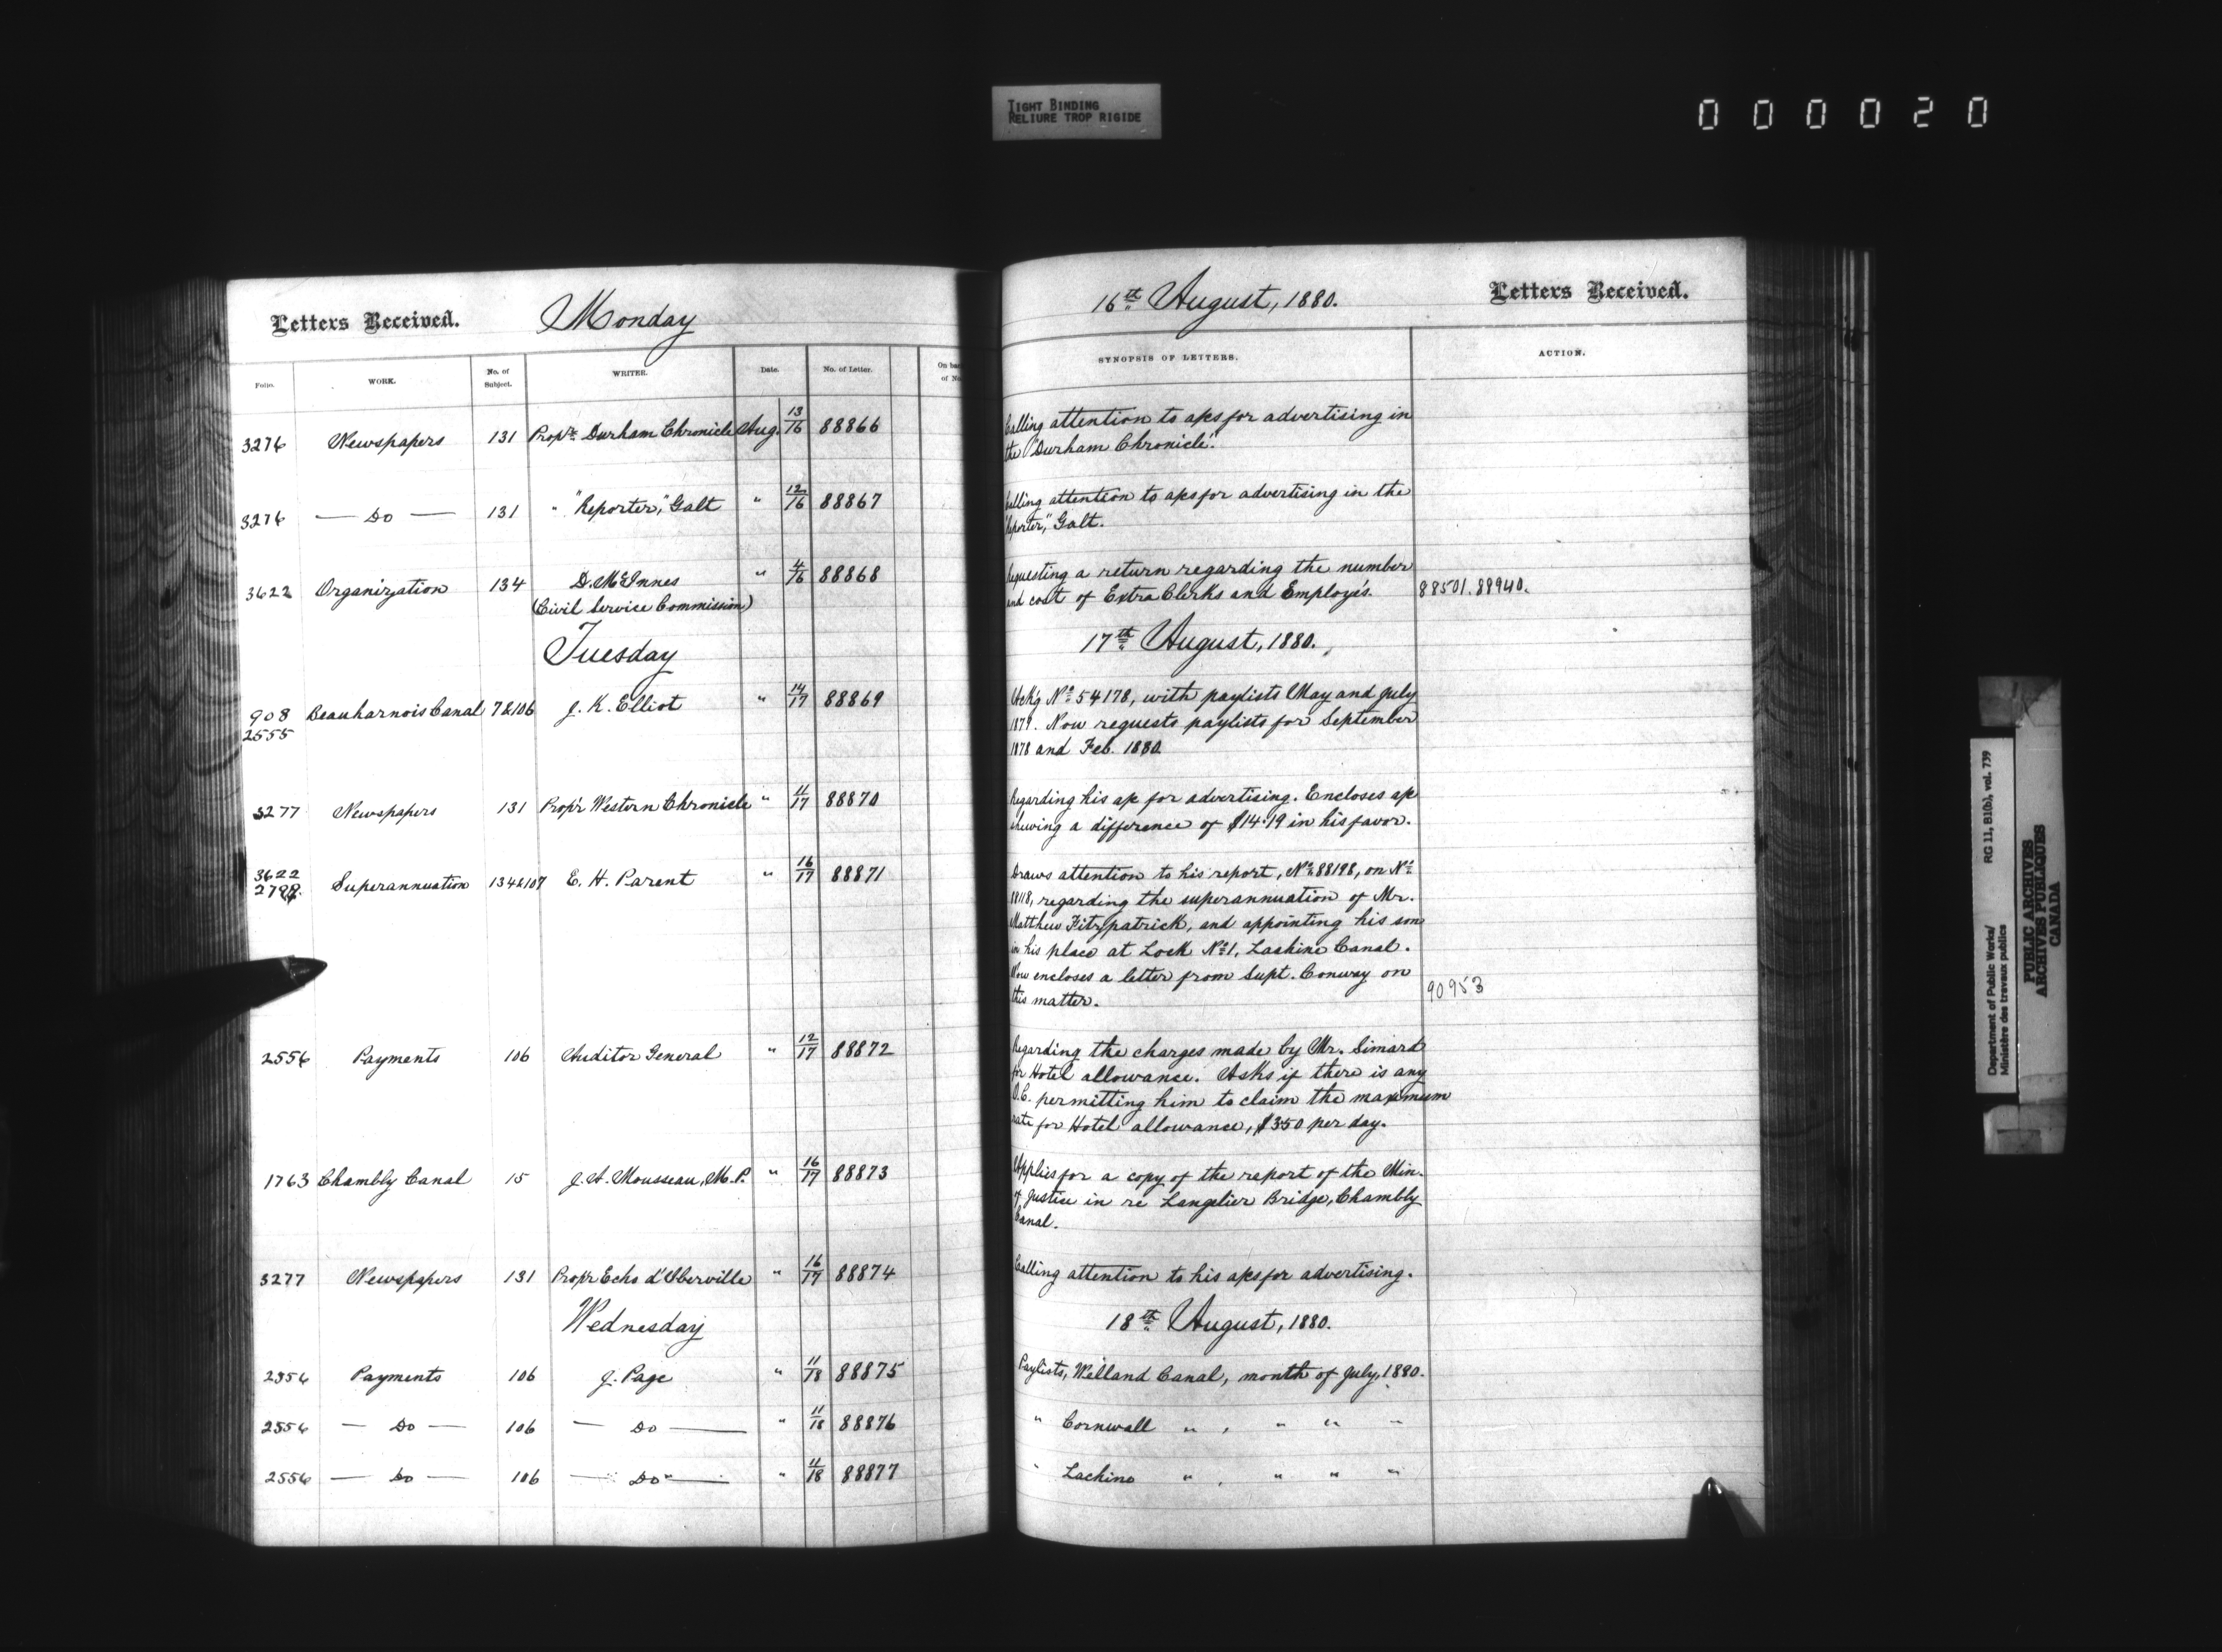 TIGHT BINDING
RELIURE TROP RIGIDE
000020
Letters Received. Monday
Folio. WORK. No. of Subject. WRITER. Date. No. of Letter. On back of No.
3276 Newspapers 131 Prop'r Durham Chronicle Aug. 13/16 88866
3276 — Do — 131 " "Reporter," Galt " 12/16 88867
3622 Organization 134 D. McInnes " 4/16 88868
(Civil Service Commission)
Tuesday
908 Beauharnois Canal 7&106 J. K. Elliot " 14/17 88869
2555
3277 Newspapers 131 Prop'r Western Chronicle " 11/17 88870
3622 Superannuation 134&107 E. H. Parent " 16/17 88871
2556 Payments 106 Auditor General " 12/17 88872
1763 Chambly Canal 15 J. A. Mousseau, M.P. " 16/17 88873
3277 Newspapers 131 Prop'r Echo d'Iberville " 16/17 88874
Wednesday
2556 Payments 106 J. Page " 11/18 88875
2556 — Do — 106 — Do — " 11/18 88876
2556 — Do — 106 — Do — " 11/18 88877
16th August, 1880. Letters Received.
SYNOPSIS OF LETTERS. ACTION.
Calling attention to a/cs for advertising in
the "Durham Chronicle".
Calling attention to a/cs for advertising in the
"Reporter," Galt.
Requesting a return regarding the number
and cost of Extra Clerks and Employés. 88501. 88940.
17th August, 1880.
Ack'g No. 54178, with paylists May and July
1879. Now requests paylists for September
1878 and Feb. 1880
Regarding his a/c for advertising. Encloses a/c
shewing a difference of $14.19 in his favor.
Draws attention to his report, No. 88198, on No.
88118, regarding the superannuation of Mr.
Matthew Fitzpatrick, and appointing his son
in his place at Lock No. 1, Lachine Canal.
Now encloses a letter from Supt. Conway on
this matter. 90953
Regarding the charges made by Mr. Simard
for Hotel allowance. Asks if there is any
O.C. permitting him to claim the maximum
rate for Hotel allowance, $3.50 per day.
Applies for a copy of the report of the Min.
of Justice in re Langelier Bridge, Chambly
Canal.
Calling attention to his a/cs for advertising.
18th August, 1880.
Paylists, Welland Canal, month of July, 1880.
" Cornwall " , " " "
" Lachine " , " " "
Department of Public Works/ RG 11, B1(b), vol. 739
Ministère des travaux publics
PUBLIC ARCHIVES
ARCHIVES PUBLIQUES
CANADA